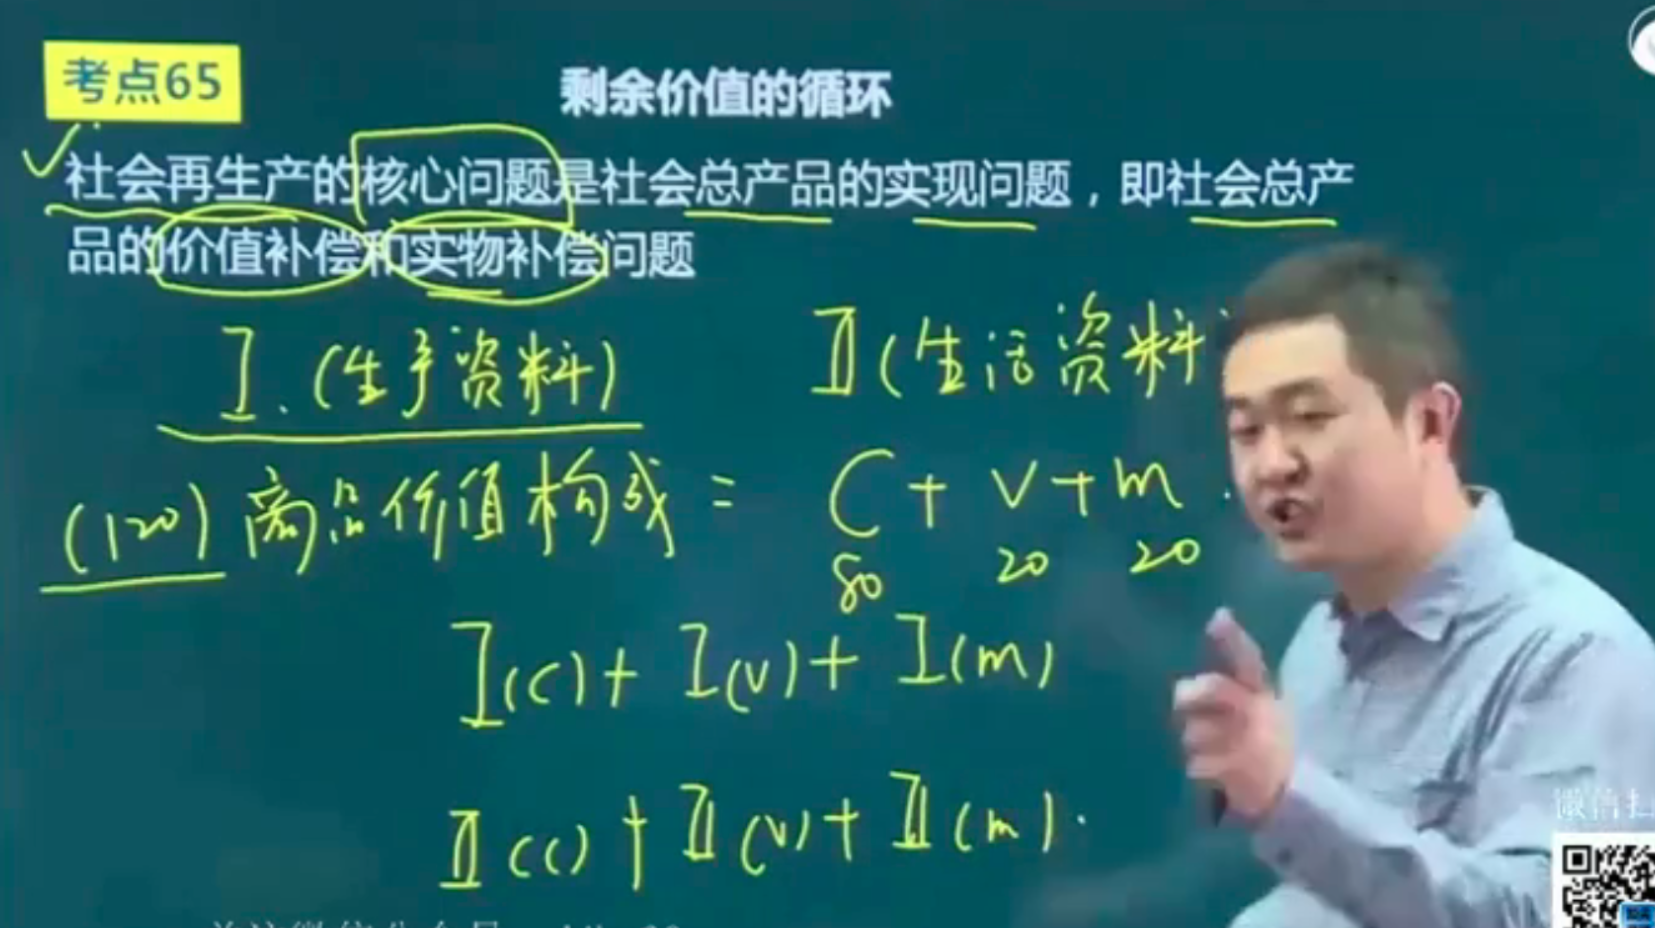 考点65
剩余价值的循环
社会再生产的核心问题是社会总产品的实现问题，即社会总产
品的价值补偿和实物补偿问题
I.(生产资料)
II(生活资料
(120)商品价值构成= C+V+m.
80 20 20
I(c)+I(v)+I(m)
II(c)+II(v)+II(m).
微信扫